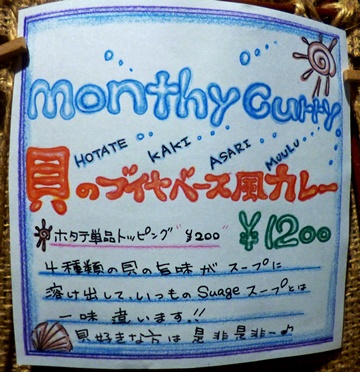 monthy curry.
HOTATE KAKI ASARI MUULU
貝のブイヤベース風カレー
ホタテ単品トッピング ¥200
¥1200
4種類の貝の旨味がスープに
溶け出して、いつものSuageスープとは
一味違います!!
貝好きな方は是非是非ー♪